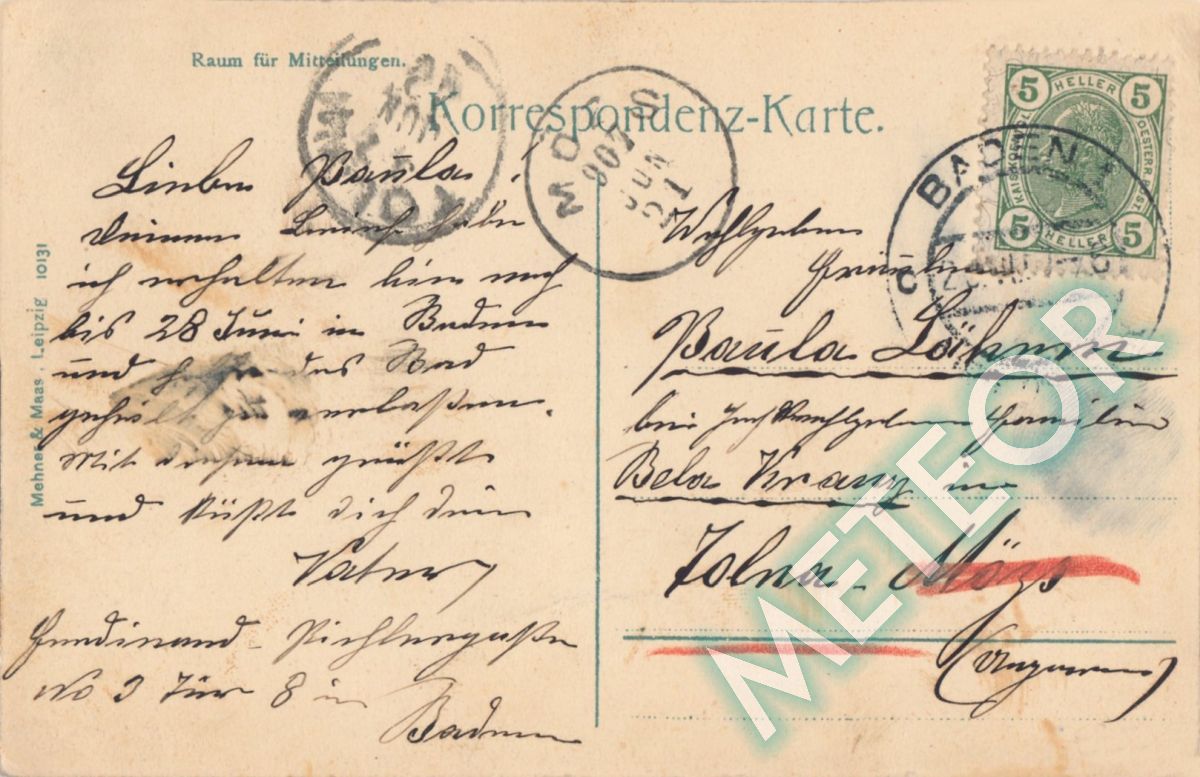 Raum für Mitteilungen.
Korrespondenz-Karte.
Liebe Paula!
Deinen habe
ich erhalten bin noch
bis 28 Juni in Baden
und das Bad
verlaßen.
Mit diesem grüßt
und küßt dich dein
Vater
Ferdinand Pichlergaße
No 3 Tür 8 in
Baden
Mehner & Maas . Leipzig 10131
MÖZS
907 JUN 21
BADEN
5 HELLER 5
5 HELLER 5
Wohlgeboren
Fräulein
Paula
bei Familie
Bela in
Tolna - Mözs
(Ungarn)
METEOR